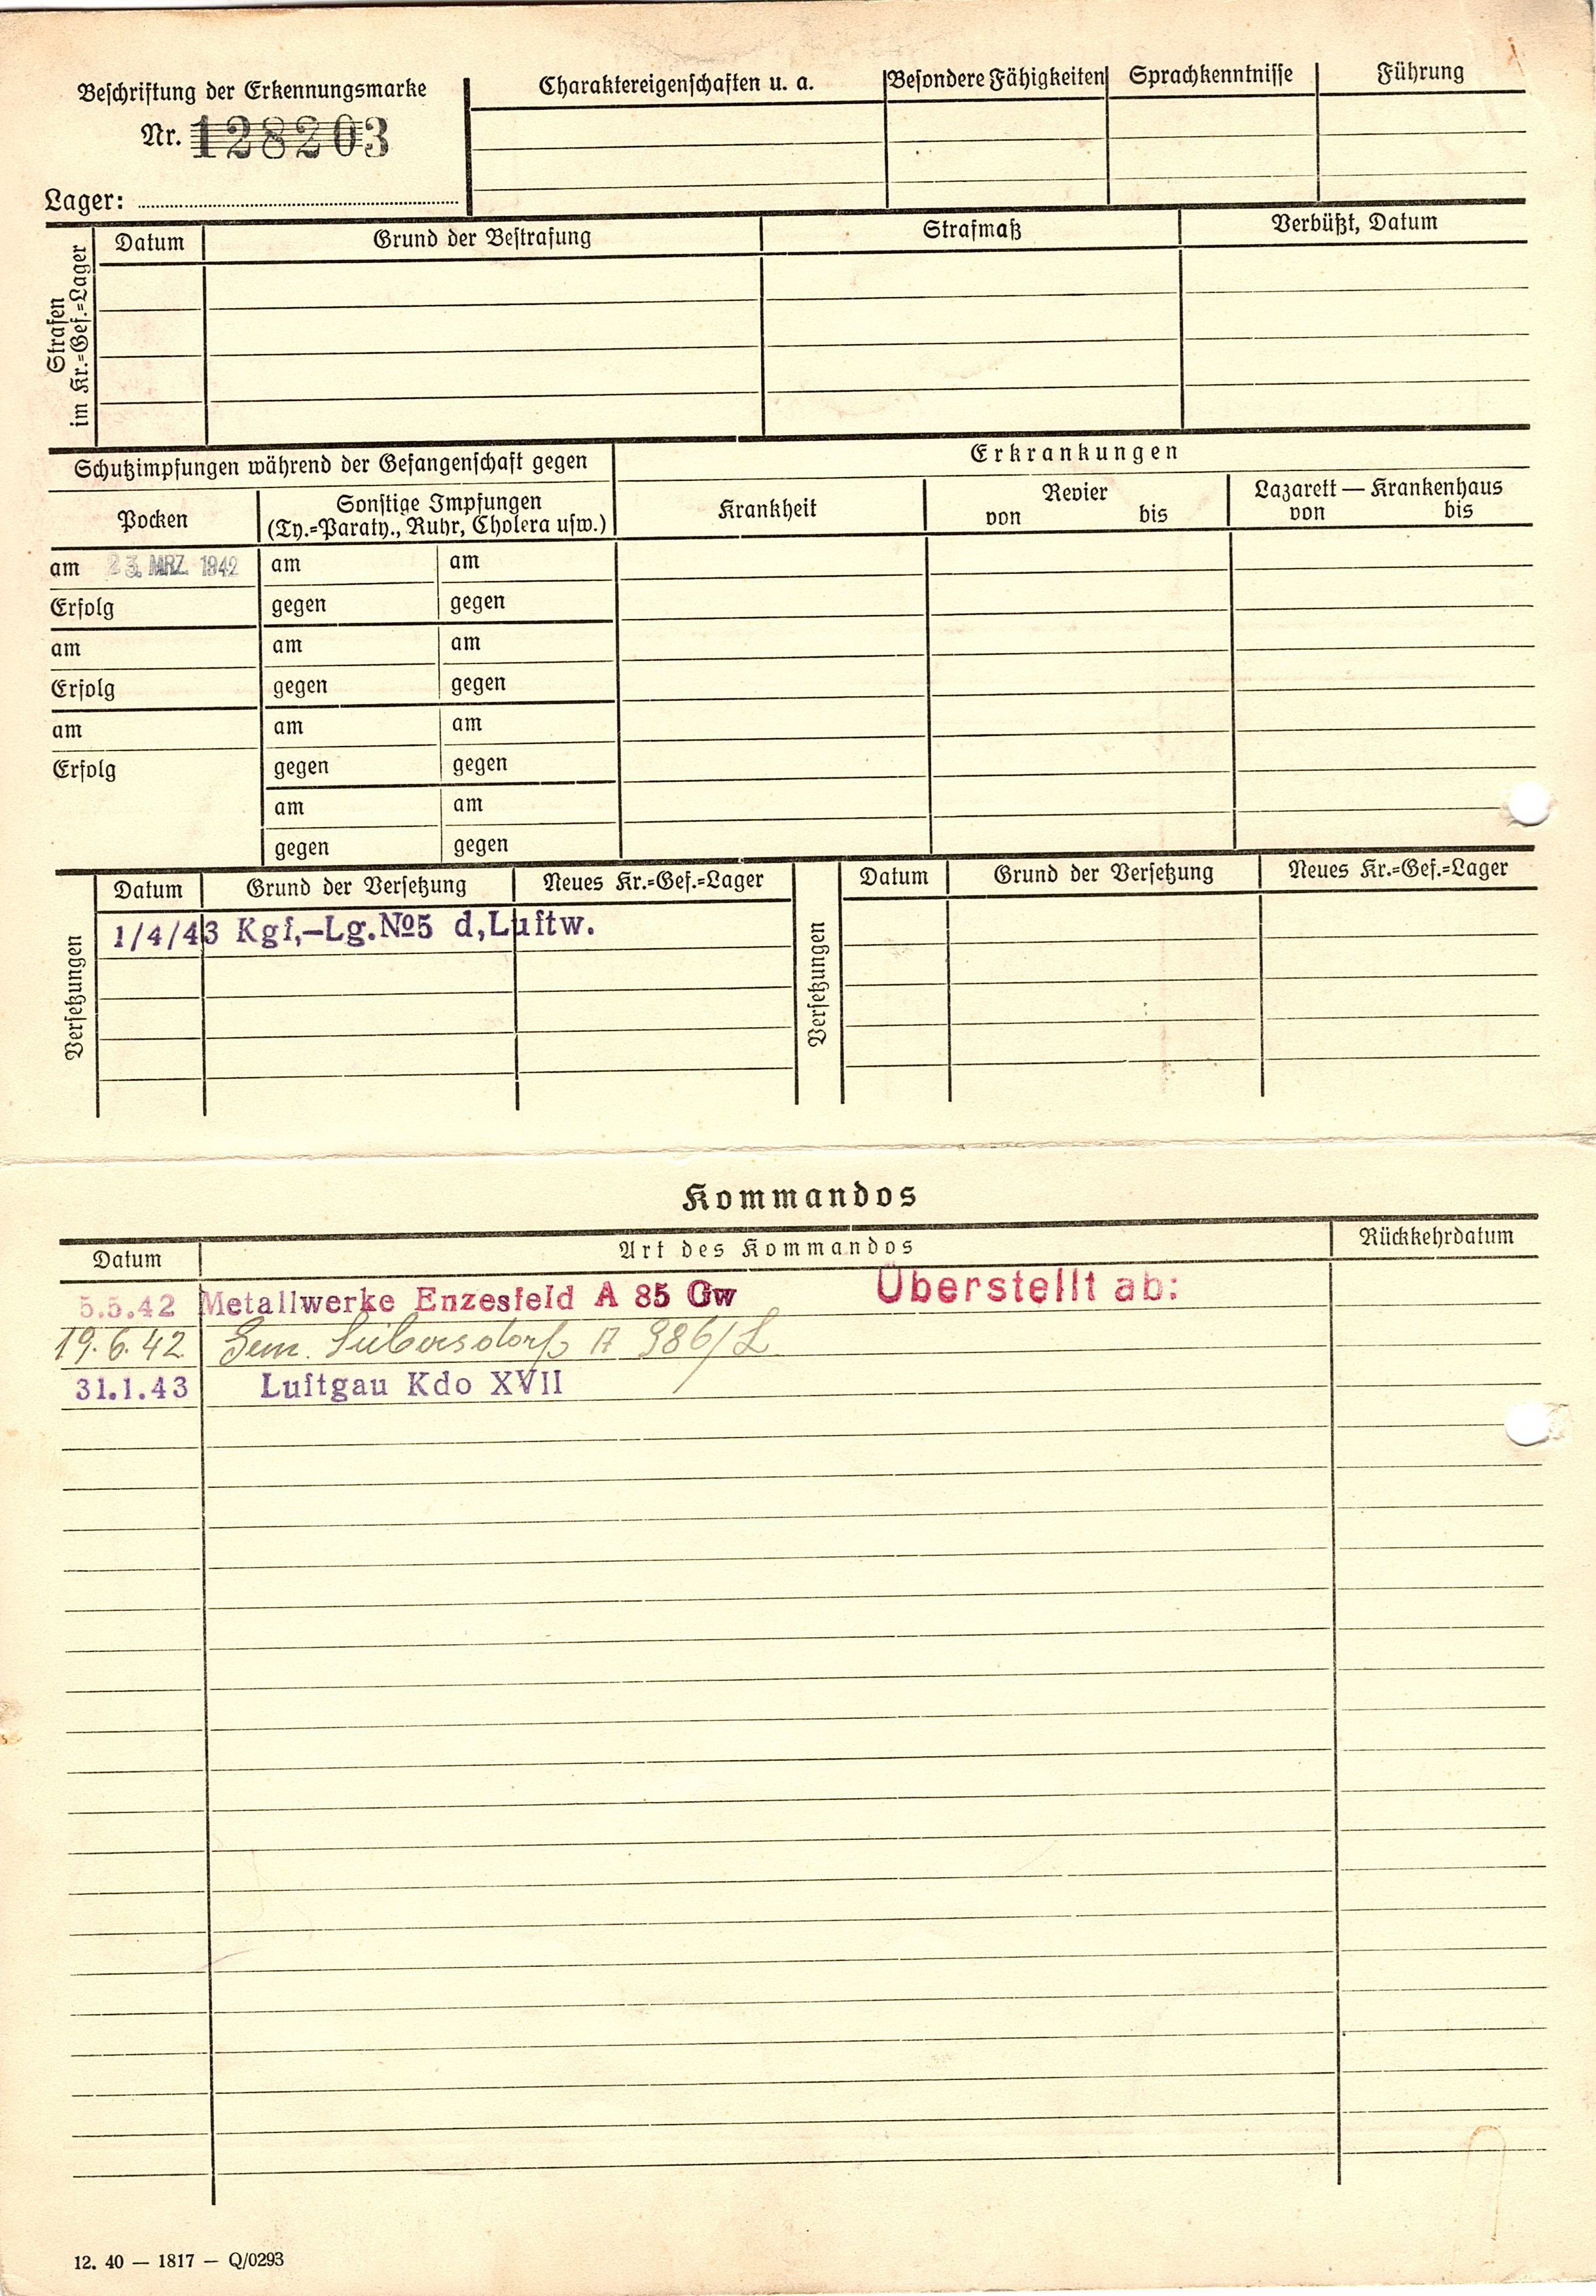 Beschriftung der Erkennungsmarke
Nr. 128203
Lager:
Charaktereigenschaften u. a.
Besondere Fähigkeiten
Sprachkenntnisse
Führung
Strafen im Kr.=Gef.=Lager
Datum
Grund der Bestrafung
Strafmaß
Verbüßt, Datum
Schutzimpfungen während der Gefangenschaft gegen
Erkrankungen
Pocken
Sonstige Impfungen
(Ty.=Paraty., Ruhr, Cholera usw.)
Krankheit
Revier
von bis
Lazarett — Krankenhaus
von bis
am 23. MRZ. 1942 am am
Erfolg gegen gegen
am am am
Erfolg gegen gegen
am am am
Erfolg gegen gegen
am am
gegen gegen
Versetzungen
Datum
Grund der Versetzung
Neues Kr.=Gef.=Lager
1/4/43 Kgf,—Lg.№5 d,Luftw.
Versetzungen
Datum
Grund der Versetzung
Neues Kr.=Gef.=Lager
Kommandos
Datum
Art des Kommandos
Rückkehrdatum
5.5.42 Metallwerke Enzesfeld A 85 Gw Überstellt ab:
19.6.42 Gem. Seibersdorf A 986/L
31.1.43 Luftgau Kdo XVII
12. 40 — 1817 — Q/0293